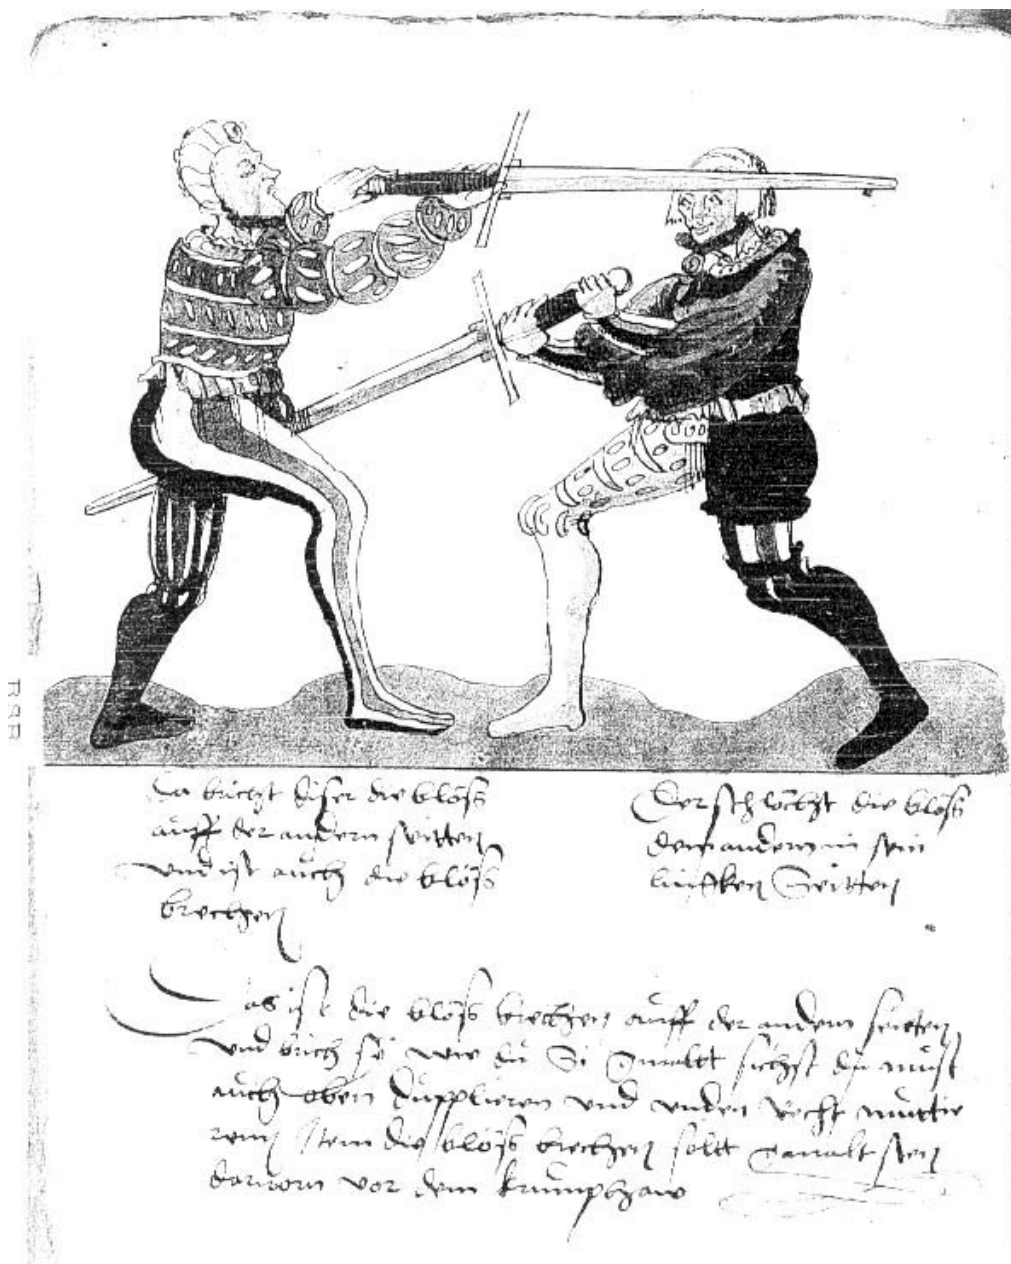 Da bricht diser die blöss
auff der andern seitten
und ist auch die blöss
brechen
Der schlecht die blöss
dem andern in sein
lincken Seitten
Das ist die blöss brechen auff der andern seitten
und brich sÿ wie du Si gmaltt sichst du must
auch oben dupplieren und unden recht muttie
ren Item die blöss brechen sollt gmalt sein
darvorn vor dem krumphaw